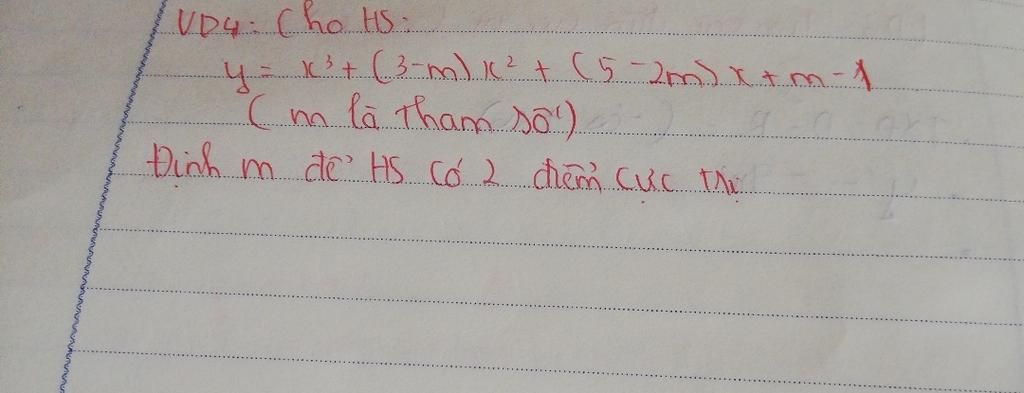 VD4: Cho HS:
y = x³ + (3-m)x² + (5-2m)x + m-1
(m là tham số)
Định m để HS có 2 điểm cực trị